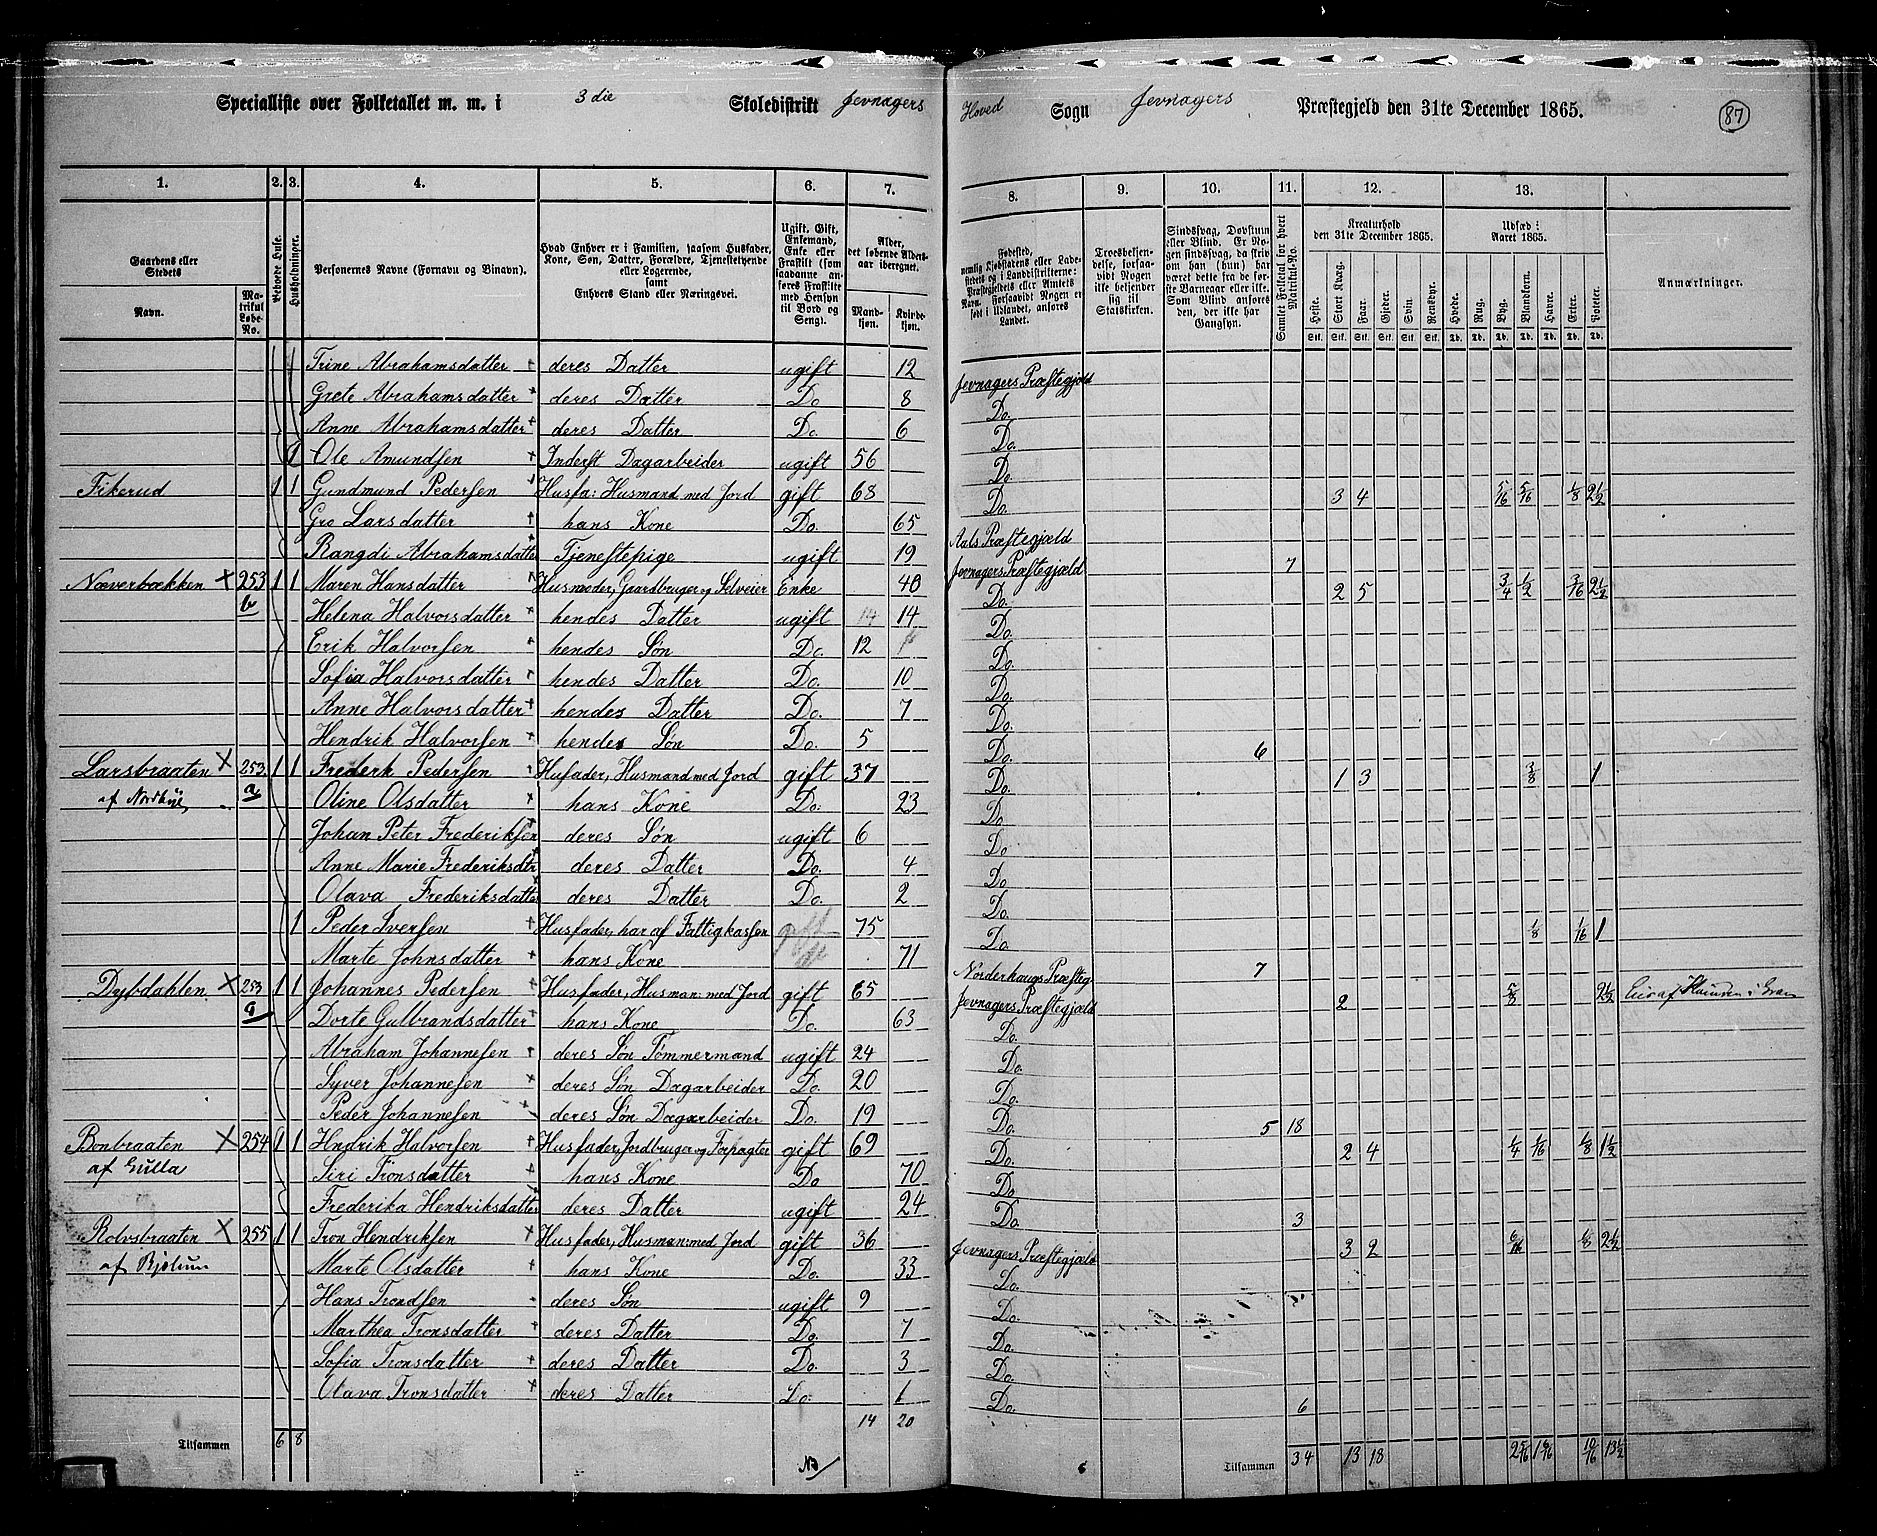 Specialliste over Folketallet m. m. i 3die Skoledistrikt Jevnagers Hoved Sogn Jevnagers Præstegjeld den 31te December 1865. 87
1. 2. 3. 4. 5. 6. 7. 8. 9. 10. 11. 12. 13.
Gaardens eller Stedets Navn. Matrikul Løbe-No. Beboede Huse. Husholdninger. Personernes Navne (Fornavn og Binavn). Hvad Enhver er i Familien, saasom Husfader, Kone, Søn, Datter, Forældre, Tjenestetyende eller Logerende, samt Enhvers Stand eller Næringsvei. Ugift, Gift, Enkemand, Enke eller Fraskilt (som saadanne anføres Fraskilte med Hensyn til Bord og Seng). Alder, det løbende Aldersaar iberegnet. Mandkjøn. Kvindekjøn. Fødested, nemlig Kjøbstadens eller Ladestedets og i Landdistrikterne: Præstegjeldets eller Amtets Navn. Forsaavidt Nogen er født i Udlandet, anføres Landet. Troesbekjendelse, forsaavidt Nogen ikke bekjender sig til Statskirken. Sindssvag, Døvstum eller Blind. Er Nogen sindssvag, da skrives om han (hun) har været dette fra de første Barneaar eller ikke. Som Blind anføres den, der ikke har Gangsyn. Samlet Folketal for hvert Matrikul-No. Kreaturhold den 31te December 1865. Heste. Stort Kvæg. Faar. Gjeder. Svin. Rensdyr. Udsæd i Aaret 1865. Hvede. Rug. Byg. Blandkorn. Havre. Erter. Poteter. Anmærkninger.
Trine Abrahamsdatter deres Datter ugift 12 Jevnagers Præstegjæld
Grete Abrahamsdatter deres Datter Do 8 Do.
Anne Abrahamsdatter deres Datter Do. 6 Do.
1 Ole Amundsen Inderst Dagarbeider ugift 56 Do.
Fikerud 1 1 Gundmund Pedersen Husfa: Husmand med Jord gift 68 Do. 3 4 5/16 5/16 1/8 2 1/2
Gro Larsdatter hans Kone Do. 65 Aals Præstegjæld
Rangdi Abrahamsdatter Tjenestepige ugift 19 Jevnagers Præstegjæld 7
Næverbækken X 253 b 1 1 Maren Hansdatter Husmoder, Gaardbruger og Selveier Enke 40 Do. 2 5 3/4 1/2 3/16 2 1/2
Helena Halvorsdatter hendes Datter ugift 14 Do.
Erik Halvorsen hendes Søn Do. 12 Do.
Sofia Halvorsdatter hendes Datter Do. 10 Do.
Anne Halvorsdatter hendes Datter Do. 7 Do.
Hendrik Halvorsen hendes Søn Do. 5 Do. 6
Larsbraaten X 253 a 1 1 Frederk Pedersen Hufader, Husmand med Jord gift 37 Do. 1 3 3/8 1
af Oline Olsdatter hans Kone Do. 23 Do
Johan Peter Frederiksen deres Søn ugift 6 Do
Anne Marie Frederiksdtr deres Datter Do. 4 Do
Olava Frederiksdatter deres Datter Do. 2 Do.
1 Peder Iversen Husfader, har af Fattigkassen gift 75 Do. 1/8 1/16 1
Marte Johnsdatter hans Kone 71 Norderhaugs Præsteg 7
Dybdahlen X 253 a 1 1 Johannes Pedersen Husfader, Husman: med Jord gift 65 Jevnagers Præstegjæld 2 5/8 2 1/2
Dorte Gulbrandsdatter hans Kone Do. 63 Do.
Abraham Johannesen deres Søn Tømmermand ugift 24 Do.
Syver Johannesen deres Søn Dagarbeider Do. 20 Do.
Peder Johannesen deres Søn Dagarbeider Do. 19 Do. 5 18
Bonbraaten X 254 1 1 Hndrik Halvorsen Husfader, Jordbruger og Forpagter gift 69 Do. 2 4 1/4 1/16 1/8 1 1/2
af Gulla Siri Tronsdatter hans Kone Do 70 Do
Frederika Hendriksdatter deres Datter ugift 24 Do. 3
Rolvsbraaten X 255 1 1 Tron Hendriksen Husfader, Husman: med Jord gift 36 Jevnagers Præstegjæld 3 2 2 1/2
af Marte Olsdatter hans Kone Do. 33 Do.
Hans Trondsen deres Søn ugift 9 Do.
Marthea Tronsdatter deres Datter Do. 7 Do.
Sofia Tronsdatter deres Datter Do. 3 Do.
Olava Tronsdatter deres Datter Do. 1 Do. 6
14 20
Tilsammen 6 8 Tilsammen 34 13 18 13 1/2